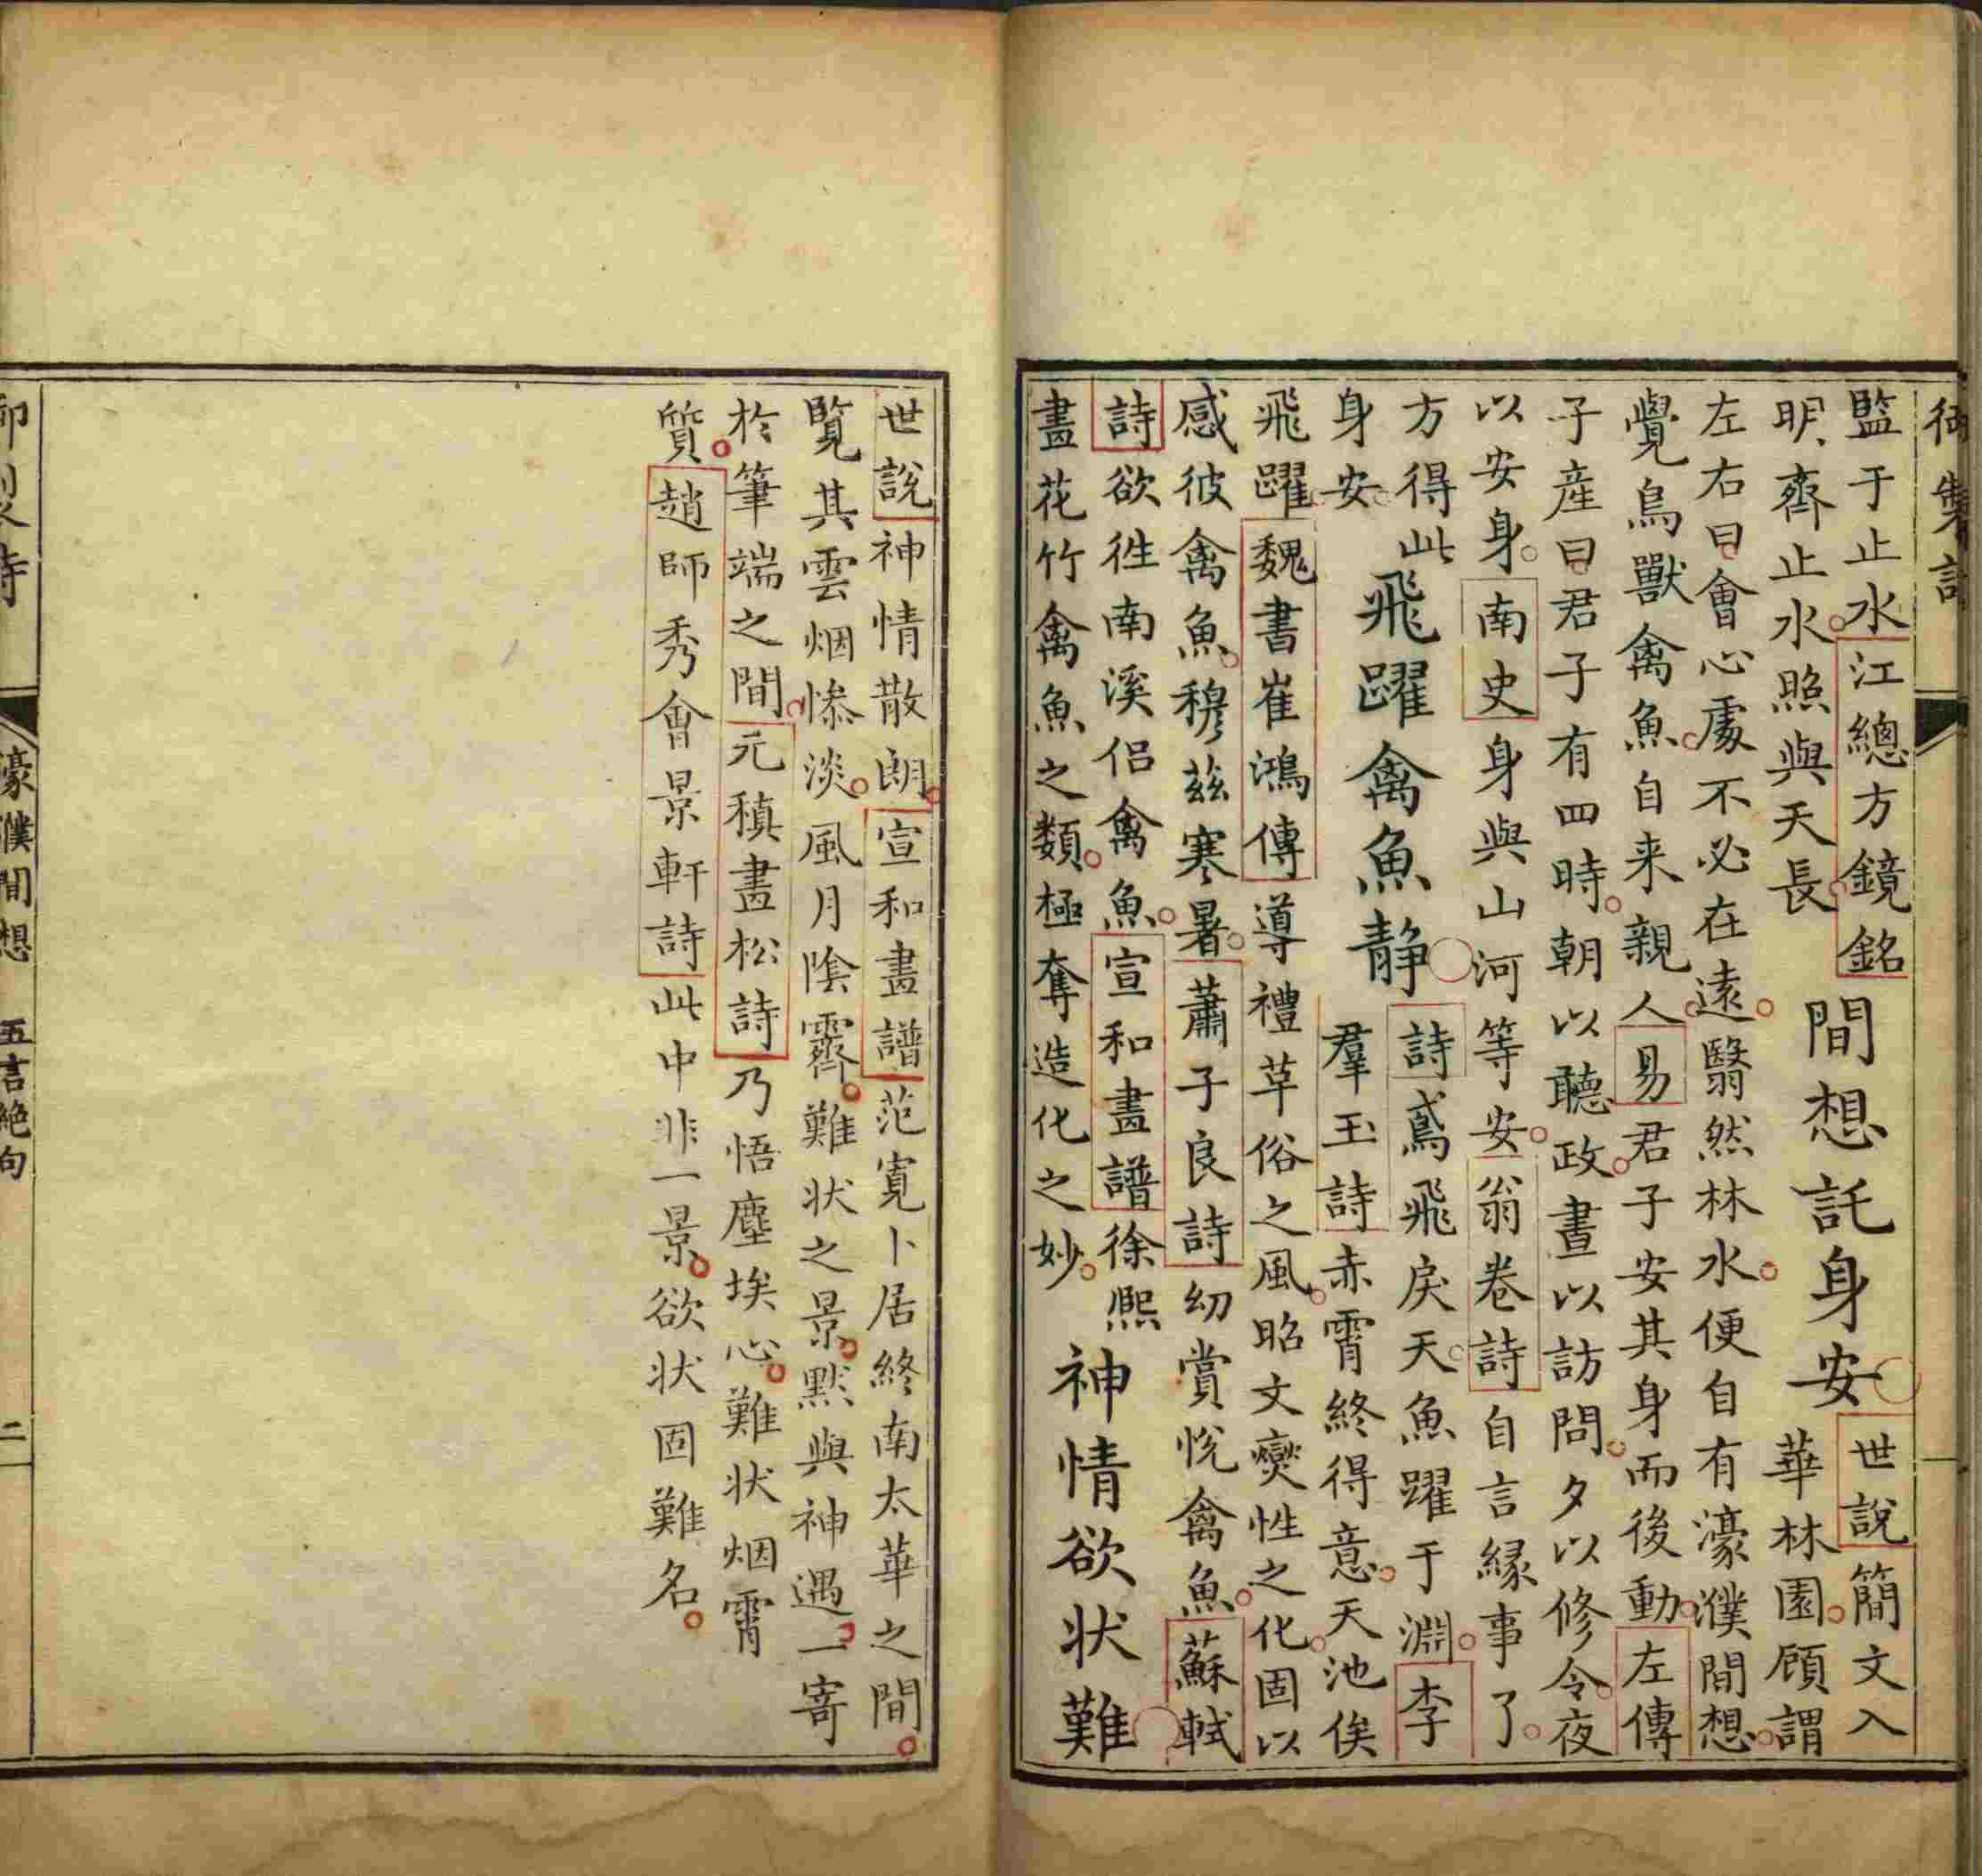 御製詩
監于止水江總方鏡銘
明齊止水照與天長
間想託身安
世說簡文入
華林園顧謂
左右曰會心處不必在遠翳然林水便自有濠濮間想
覺鳥獸禽魚自来親人易君子安其身而後動左傳
子產曰君子有四時朝以聽政晝以訪問夕以修令夜
以安身南史身與山河等安翁卷詩自言緣事了
方得此
身安
飛躍禽魚静
詩鳶飛戾天魚躍于淵李
羣玉詩赤霄終得意天池俟
飛躍魏書崔鴻傳導禮草俗之風昭文變性之化固以
感彼禽魚穆兹寒暑蕭子良詩幼賞悅禽魚蘇軾
詩欲徃南溪侣禽魚宣和畫譜徐熙
畫花竹禽魚之類極奪造化之妙
神情欲状難
世說神情散朗宣和畫譜范寬卜居終南太華之間
覽其雲烟惨淡風月陰霽難状之景默與神遇一寄
於筆端之間元稹畫松詩乃悟塵埃心難状烟霄
質趙師秀會景軒詩此中非一景欲状固難名
御製詩
濠濮間想
五言絶句
二